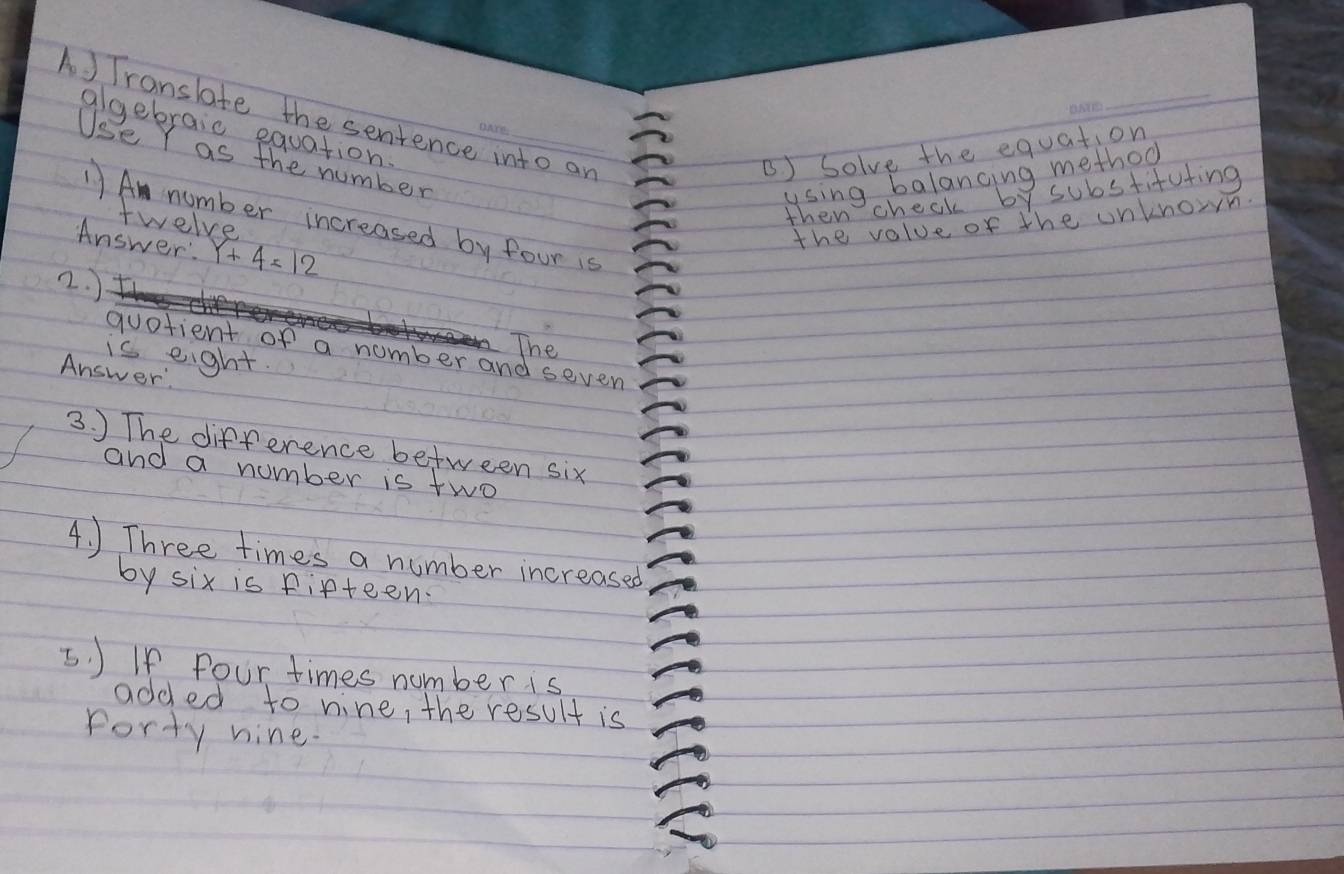 A.) Translate the sentence into an
algebraic equation.
Use Y as the number
1) A number increased by four is
twelve
Answer: Y + 4 = 12
2.) The difference between The
quotient of a number and seven
is eight.
Answer:
3.) The difference between six
and a number is two
4.) Three times a number increased
by six is fifteen.
5.) If four times number is
added to nine, the result is
Forty nine.
DATE:
DATE:
B) Solve the equation
using balancing method
then check by substituting
the value of the unknown.